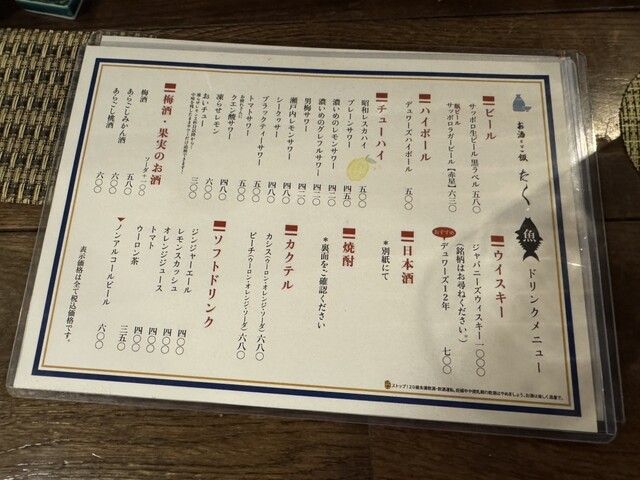 お酒とご飯
たく
魚
ドリンクメニュー
ビール
サッポロ生ビール黒ラベル 五八〇
瓶ビール
サッポロラガービール【赤星】 六三〇
ハイボール
デュワーズハイボール 五〇〇
チューハイ
昭和レスカハイ 五〇〇
プレーンサワー 四五〇
濃いめのレモンサワー 四二〇
濃いめのグレフルサワー 四二〇
男梅サワー 四二〇
瀬戸内レモンサワー 四八〇
シークヮサー 四八〇
ブラックティーサワー 四八〇
トマトサワー 五五〇
クエン酸サワー 五五〇
凍らせレモン 四八〇
おいチュー 六〇〇
三〇〇
梅酒・果実のお酒
ソーダ+一〇〇
梅酒 五〇〇
あらごしみかん酒 五八〇
あらごし桃酒 六〇〇
ウイスキー
ジャパニーズウィスキー 一〇〇〇
(銘柄はお尋ねください)
おすすめ
デュワーズ12年 七〇〇
日本酒
*別紙にて
焼酎
*裏面をご確認ください
カクテル
カシス(ウーロン・オレンジ・ソーダ) 六八〇
ピーチ(ウーロン・オレンジ・ソーダ) 六八〇
ソフトドリンク
ジンジャーエール 四〇〇
レモンスカッシュ 四〇〇
オレンジジュース 四〇〇
トマト 四〇〇
ウーロン茶 三五〇
▼ノンアルコールビール 六〇〇
表示価格は全て税込価格です。
ストップ!20歳未満飲酒・飲酒運転。妊娠中や授乳期の飲酒はやめましょう。お酒は楽しく適量で。